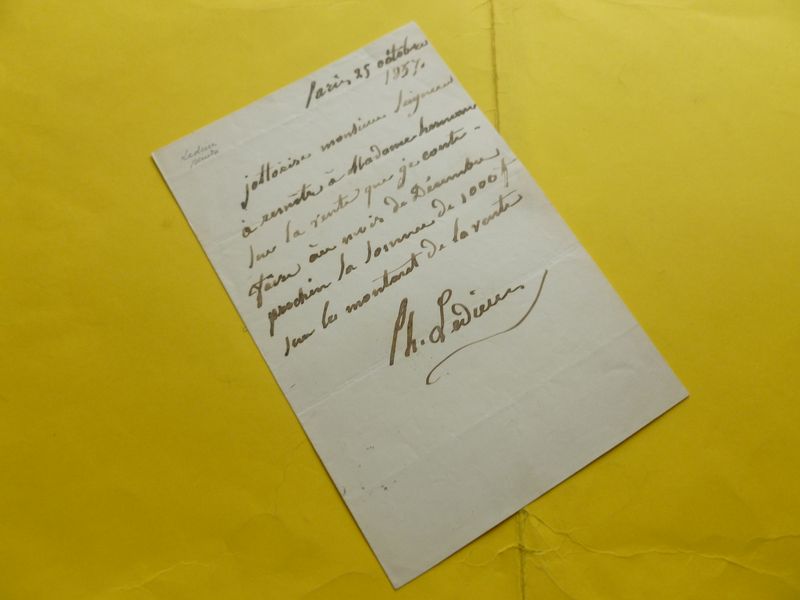 Paris, 25 octobre
1857.
Ledieu
jottorise monsieur Seigneur
à remètre à Madame
sur la vente que je conte
faire au mois de Décembre
prochin la somme de 1000 f
sur le montant de la vente
Ph. Ledieu